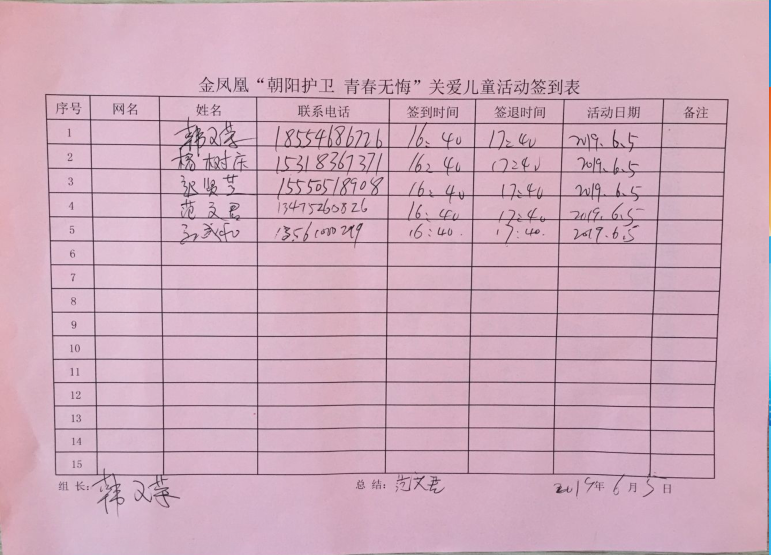 金凤凰“朝阳护卫 青春无悔”关爱儿童活动签到表
序号 网名 姓名 联系电话 签到时间 签退时间 活动日期 备注
1 韩又荣 18554686726 16:40 17:40 2019.6.5
2 杨树庆 15318367371 16:40 17:40 2019.6.5
3 贤芝 15550518908 16:40 17:40 2019.6.5
4 范文君 13475260826 16:40 17:40 2019.6.5
5 16:40. 17:40. 2019.6.5
6
7
8
9
10
11
12
13
14
15
组 长: 韩又荣 总 结: 范文君 2019年 6 月 5 日